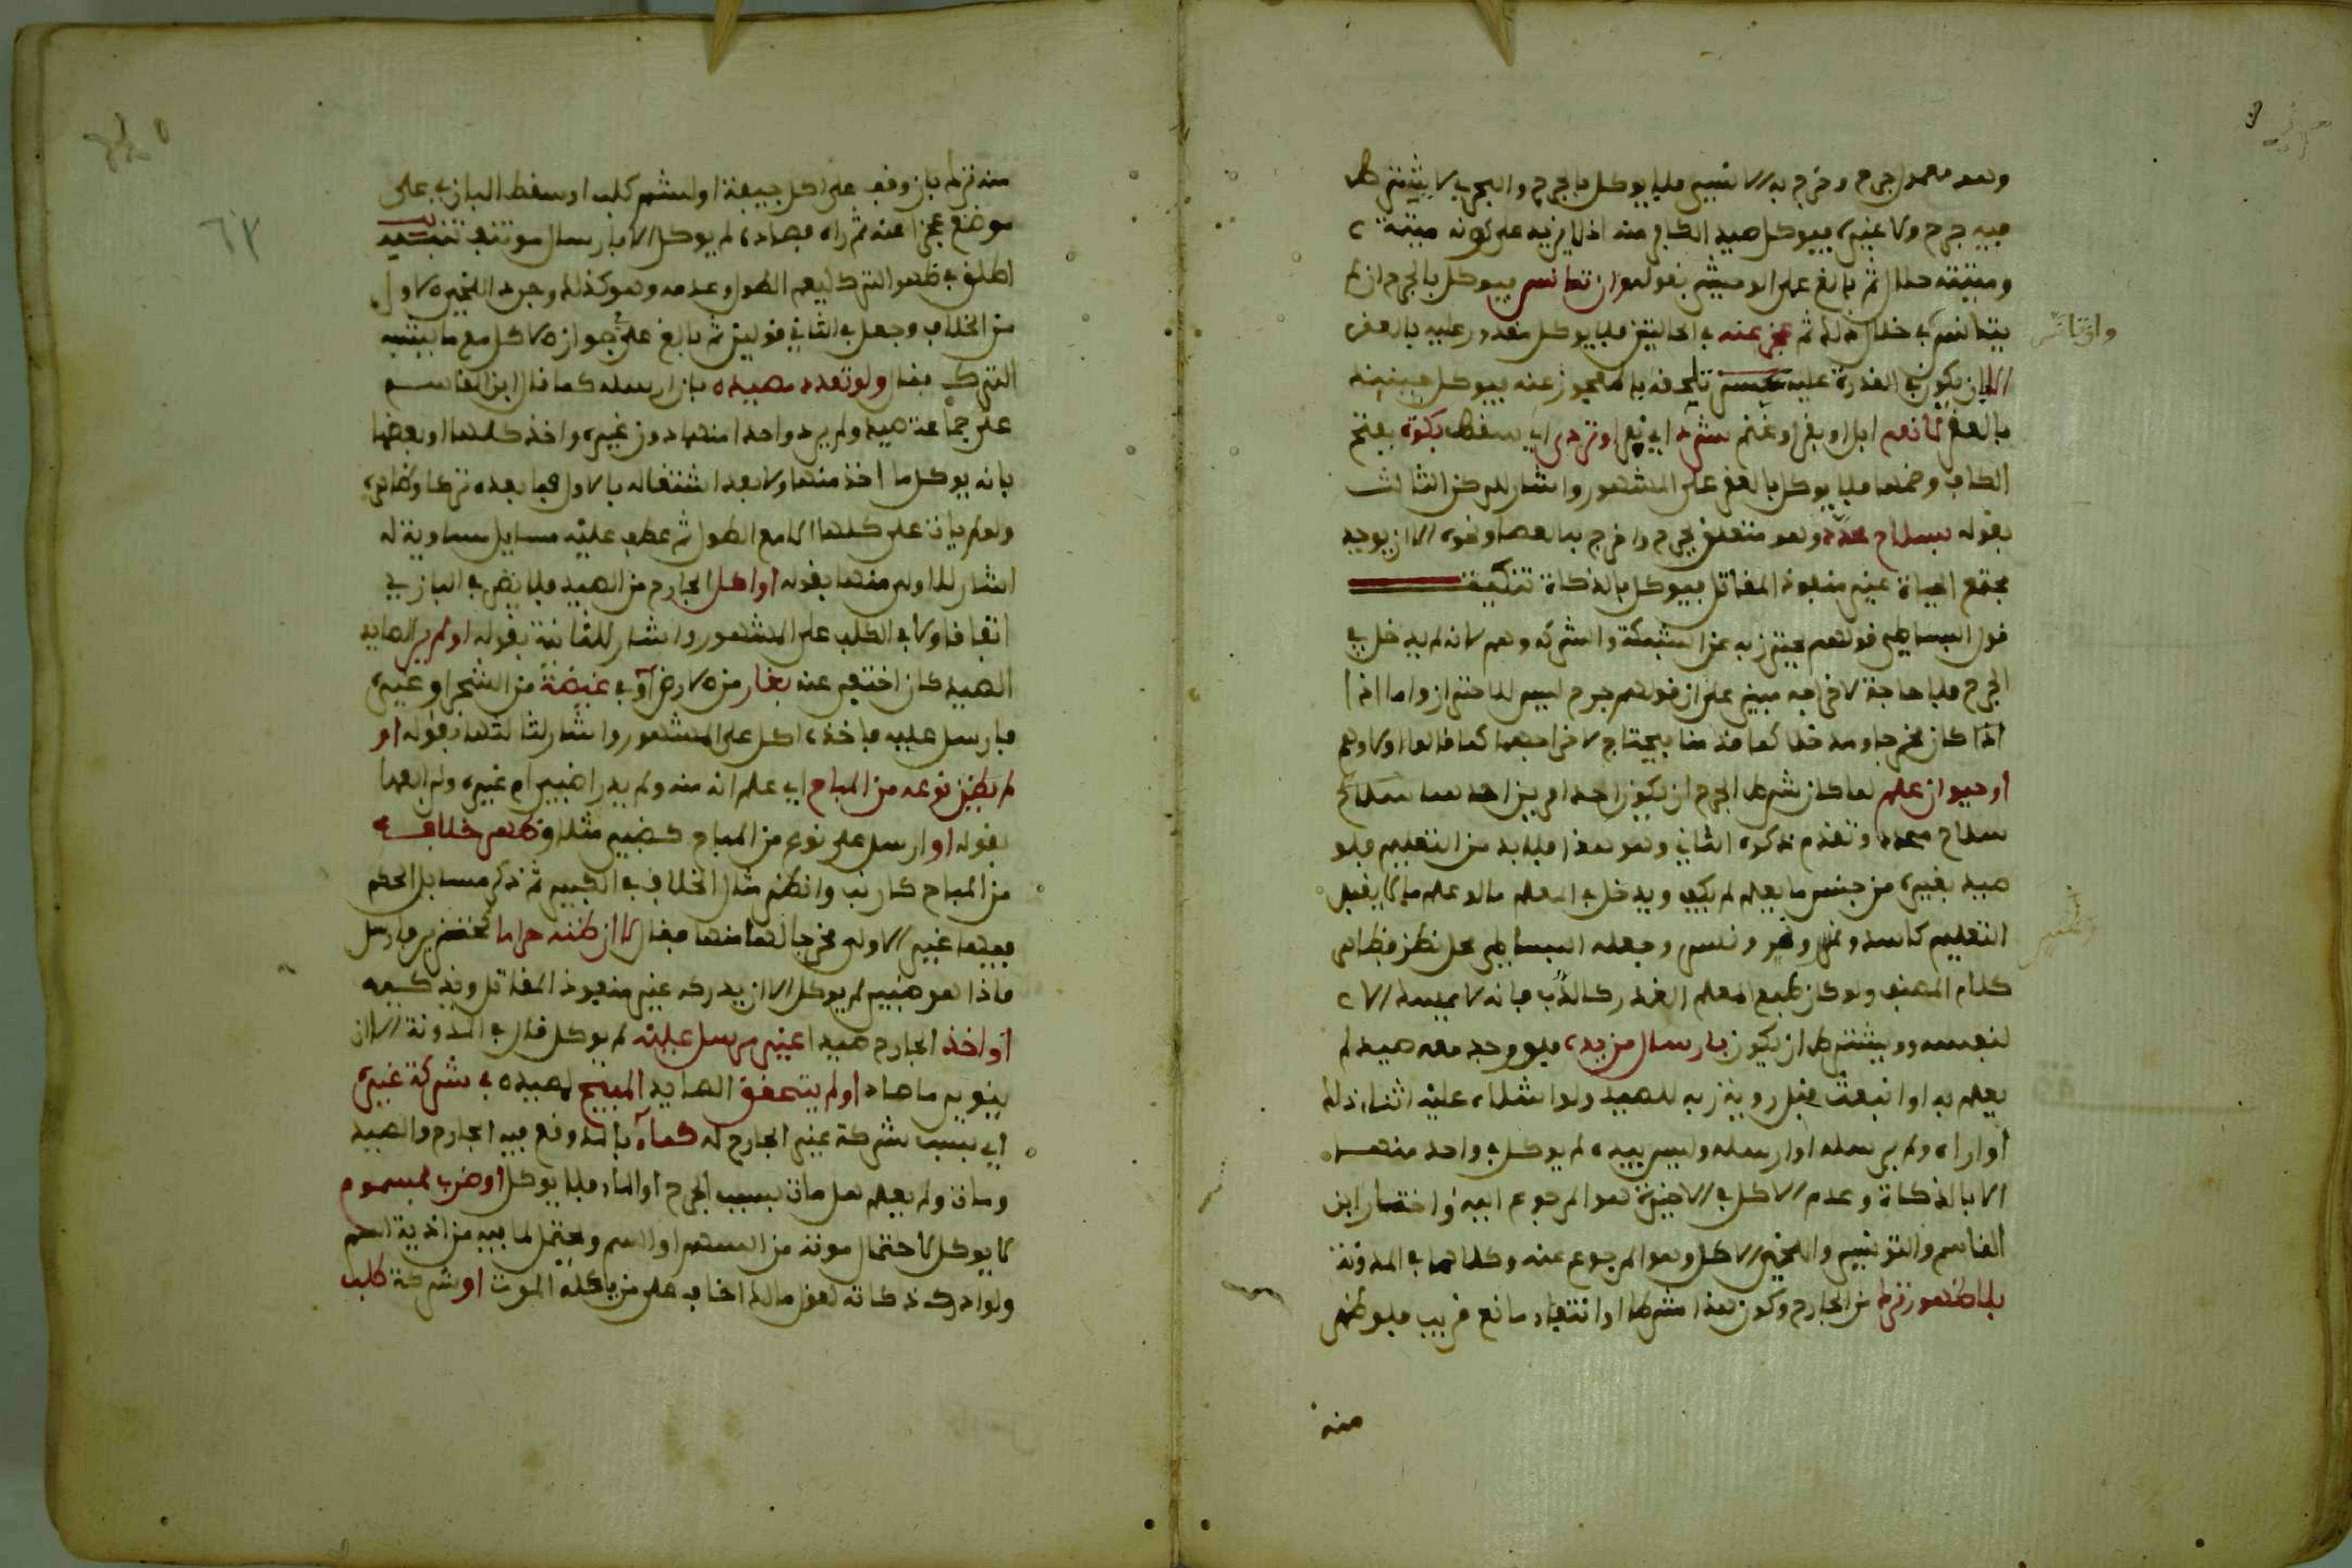 وهو معمول جرح وخرج به الانسي فلا يوكل بالجرح والبحري لا يشترط
فيه جرح ولا غيره فيوكل صيد الكافر منه اذ لا يزيد على كونه ميتة
وميتته حلال ثم بالغ على الوحشي بقوله وان تانس فيوكل بالجرح ان لم
يتانس في خلال ذلك ثم عجز عنه في الحالتين فلا يوكل مقدور عليه بالعقر
الا ان يكون في القدرة عليه تلحقه بالمعجوز عنه فيوكل حينئذ
بالعقر لا نعم ابل او بقر او غنم شرد اي نفر او تردى اي سقط بكوة بفتح
الكاف وضمها فلا يوكل بالعقر على المشهور واشار للركن الثالث
بقوله بسلاح محدد وهو متعلق بجرح واخرج به العصا ونحوه الا ان يوجد
مجتمع الحياة غير منفوذ المقاتل فيوكل بالذكاة تنكيت
قول البساطي قولهم يحترز به عن الشبكة والشرك وهم لانه لم يدخل في
الجرح فلا حاجة لاخراجه مبني على ان قولهم جرح ليس للاحتراز واما اذا
اذا كان مخرجا ومدخلا كما قدمنا فيحتاج لاخراجهما كما قالوا ولا وهم
او حيوان علم لما كان شرط الجرح ان يكون احد امرين احدهما سلاح
سلاح محدد وتقدم ذكره الثاني وهو هذا فلا بد من التعليم فلو
صيد بغيره من جنس ما يعلم لم يكف ويدخل في المعلم ما لو علم ما لا يقبل
التعليم كاسد ونمر ونمس وجعله البساطي محل نظر فظاهر
كلام المصنف ولو كان طبع المعلم الغدر كالدب فانه لا يمسك الا
لنفسه ويشترط ان يكون بارسال من يده فلو وجد معه صيد لم
يعلم به او انبعث قبل روية ربه للصيد ولو اشلاه عليه اثناء ذلك
او اراه ولم يرسله او ارسله وليس بيده لم يوكل في واحد منهما
الا بالذكاة وعدم الاكل في الاخيرة هو المرجوع اليه واختار ابن
القاسم والتونسي واللخمي الاكل وهو المرجوع عنه وكلاهما في المدونة
بلا ظهور ترك من الجارح وكون هذا شرطا او انتفاء مانع قريب فلو ظهر
منه
وان تانس
منه ترك بان وقف على اكل جيفة او لشم كلب او سقط البازي على
موضع عجزا عنه ثم راه فصاده لم يوكل الا بارسال موتنف تنبيه
اطلق في ظهور الترك ليعم الطول وعدمه وهو كذلك وجرد اللخمي الاول
من الخلاف وجعل في الثاني قولين ثم بالغ على جواز الاكل مع ما ينتبه
الترك فقال ولو تعدد مصيده بان ارسله كما قال ابن القاسم
على جماعة صيد ولم يرد واحدا منها دون غيره واخذ كلها او بعضها
بانه يوكل ما اخذ منها ولا يعد اشتغاله بالاول فما بعده تركا وظاهره
ولو لم يات على كلها الا مع الطول ثم عطف عليه مسايل مساوية له
اشار للاولى منها بقوله او اكل الجارح من الصيد فلا يضر في البازي
اتفاقا ولا في الكلب على المشهور واشار للثانية بقوله او لم ير الصايد
الصيد كان اختفى عنه بغار من الارض او في غيضة من الشجر او غيره
فارسل عليه فاخذه اكل على المشهور واشار لثالثتها بقوله او
لم يظن نوعه من المباح اي علم انه منه ولم يدر اضبي ام غيره ولرابعها
بقوله او ارسل على نوع من المباح كضبي مثلا وظهر خلافه
من المباح كارنب وانظر مثل الخلاف في الكبير ثم ذكر مسايل الحكم
فيها غير الاولى مخرجا لها منها فقال لا ان ظنه حراما كخنزير فارسل
فاذا هو ضبي لم يوكل الا ان يدركه غير منفوذ المقاتل ويذكيه
او اخذ الجارح صيدا غير مرسل عليه لم يوكل قال في المدونة الا ان
ينوي ما صاد او لم يتحقق الصايد المبيح لصيده في شركة غيره
اي بسبب شركة غير الجارح له كماء بالمد وقع فيه الجارح والصيد
ومات ولم يعلم هل مات بسبب الجرح او الماء فلا يوكل او ضرب بمسموم
لا يوكل لاحتمال موته من السهم او السم ويحتمل لما فيه من اذية السم
ولو ادرك ذكاته لقول مالك اخاف على من ياكله الموت او شركة كلب
٦٣